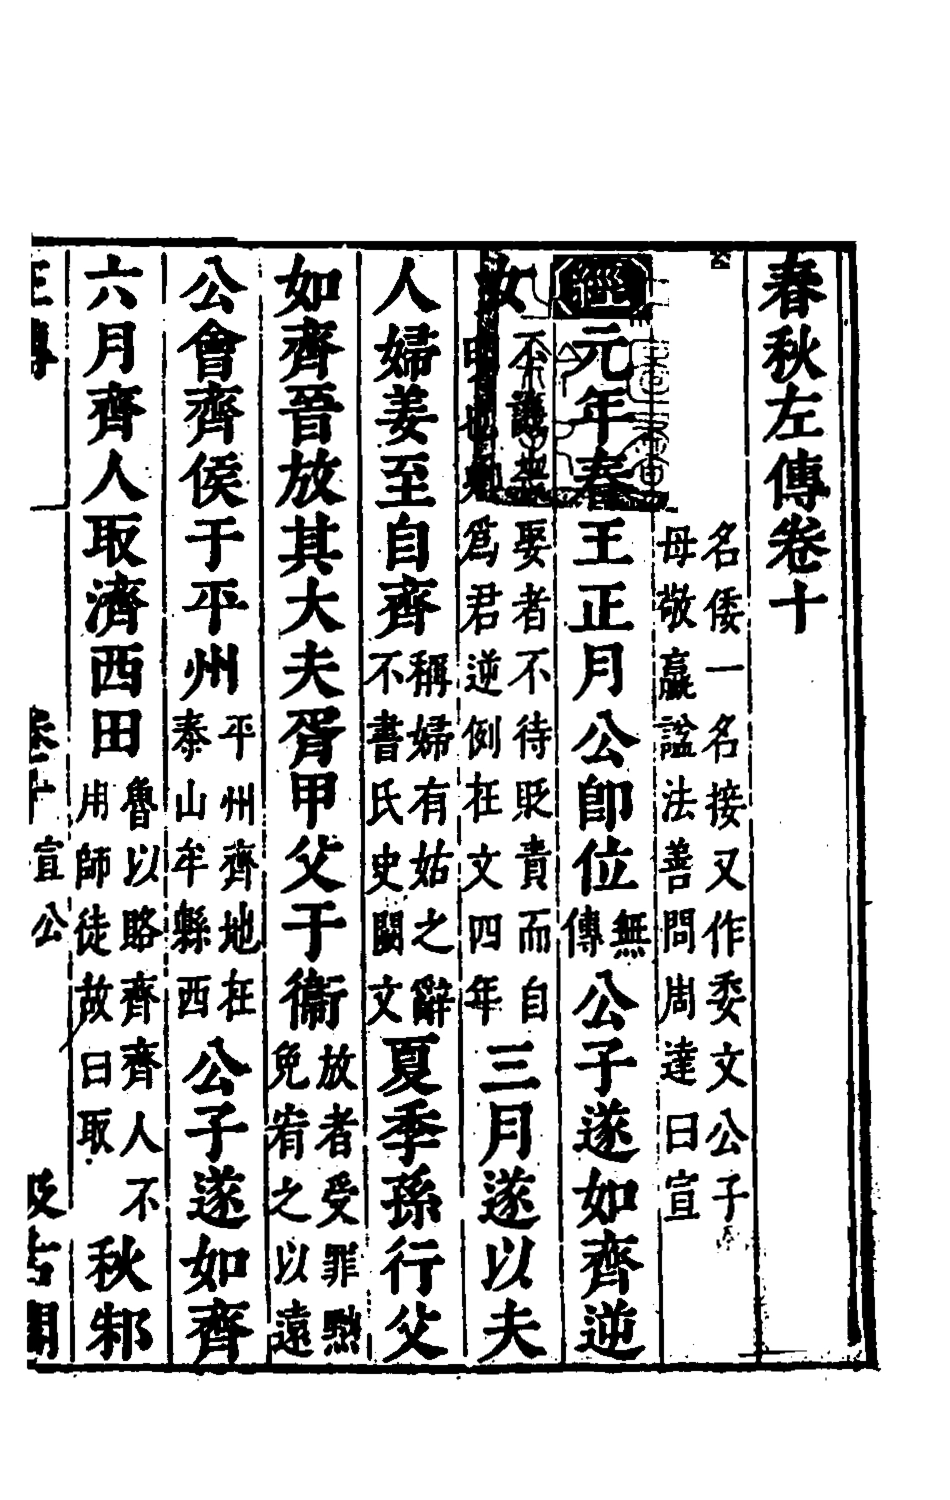 春秋左傳卷十
名倭一名接又作委文公子
母敬嬴諡法善問周達曰宣
經元年春王正月公卽位無傳公子遂如齊逆
女不譏喪娶者不待貶責而自明也卿爲君逆例在文四年三月遂以夫
人婦姜至自齊稱婦有姑之辭不書氏史闕文夏季孫行父
如齊晉放其大夫胥甲父于衞放者受罪黜免宥之以遠
公會齊侯于平州平州齊地在泰山牟縣西公子遂如齊
六月齊人取濟西田魯以賂齊齊人不用師徒故曰取秋邾
卷十 宣公 汲古閣